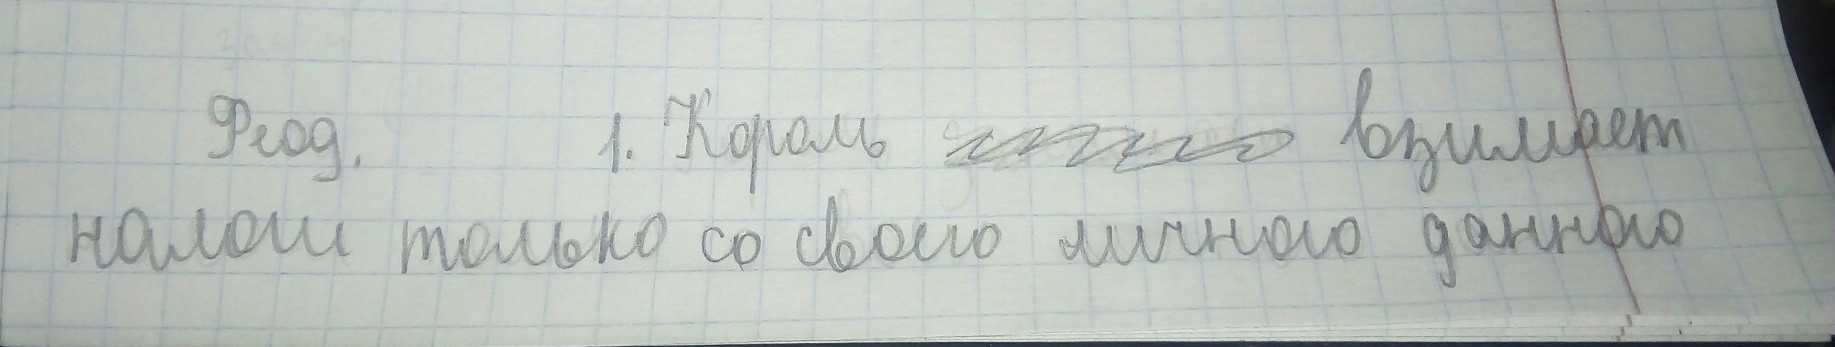 Феод. 1. Король взимает
налоги только со своего личного данного